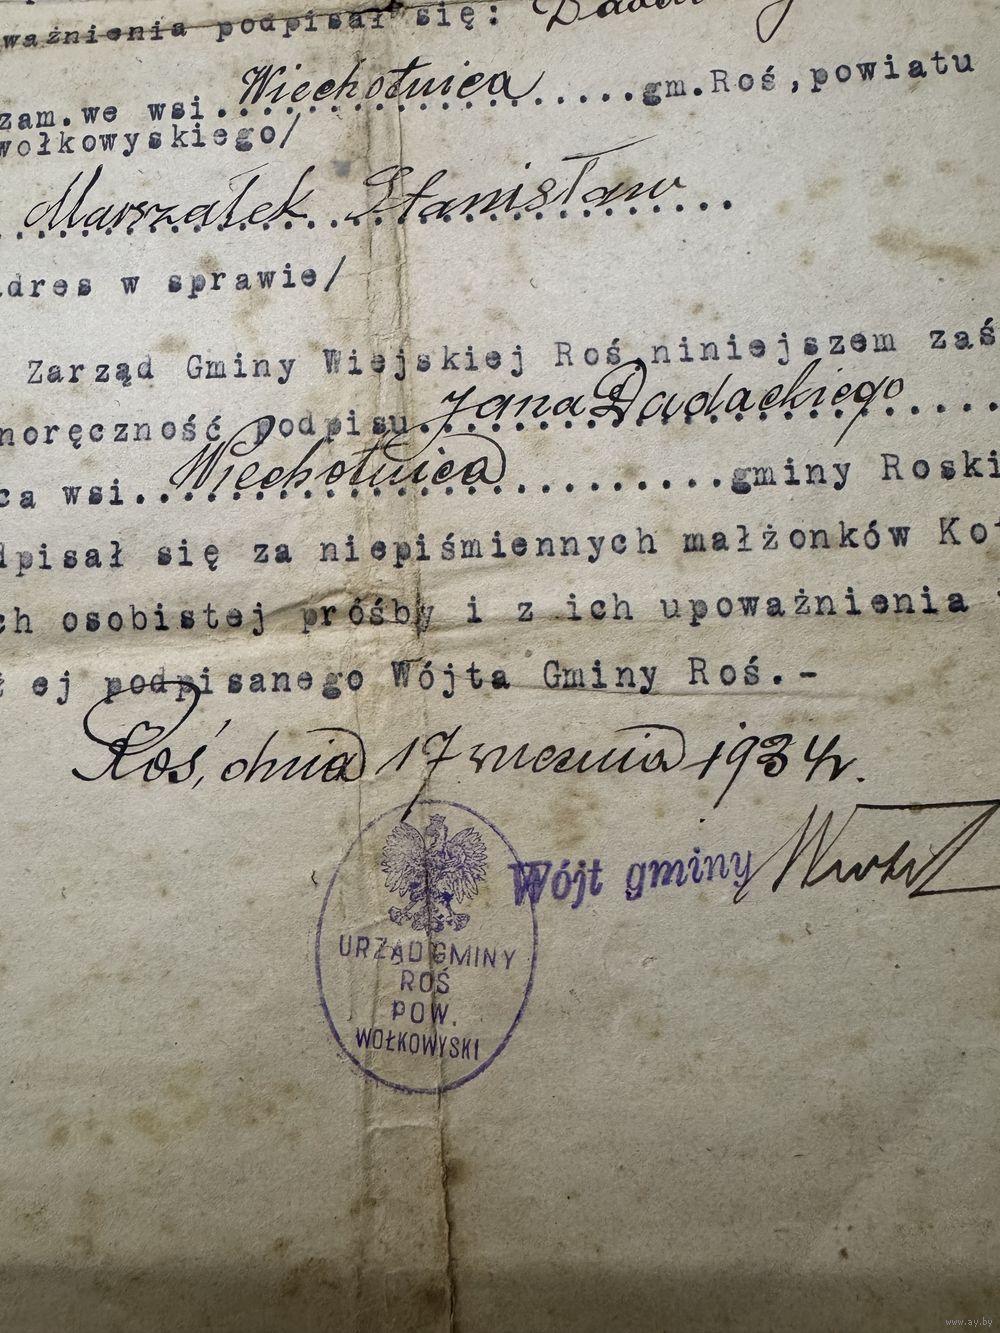 ważnienia podpisał się:
zam.we wsi. Wiechotnica gm.Roś,powiatu
wołkowyskiego/
Marszałek Stanisław
adres w sprawie/
Zarząd Gminy Wiejskiej Roś niniejszem zaś
noręczność podpisu. Jana Dadackiego
ca wsi. Wiechotnica gminy Roski
dpisał się za niepiśmiennych małżonków Kot
ch osobistej próśby i z ich upoważnienia
ej podpisanego Wójta Gminy Roś.-
Roś, dnia 17 września 1934 r.
Wójt gminy
URZĄD GMINY
ROŚ
POW.
WOŁKOWYSKI
www.ay.by